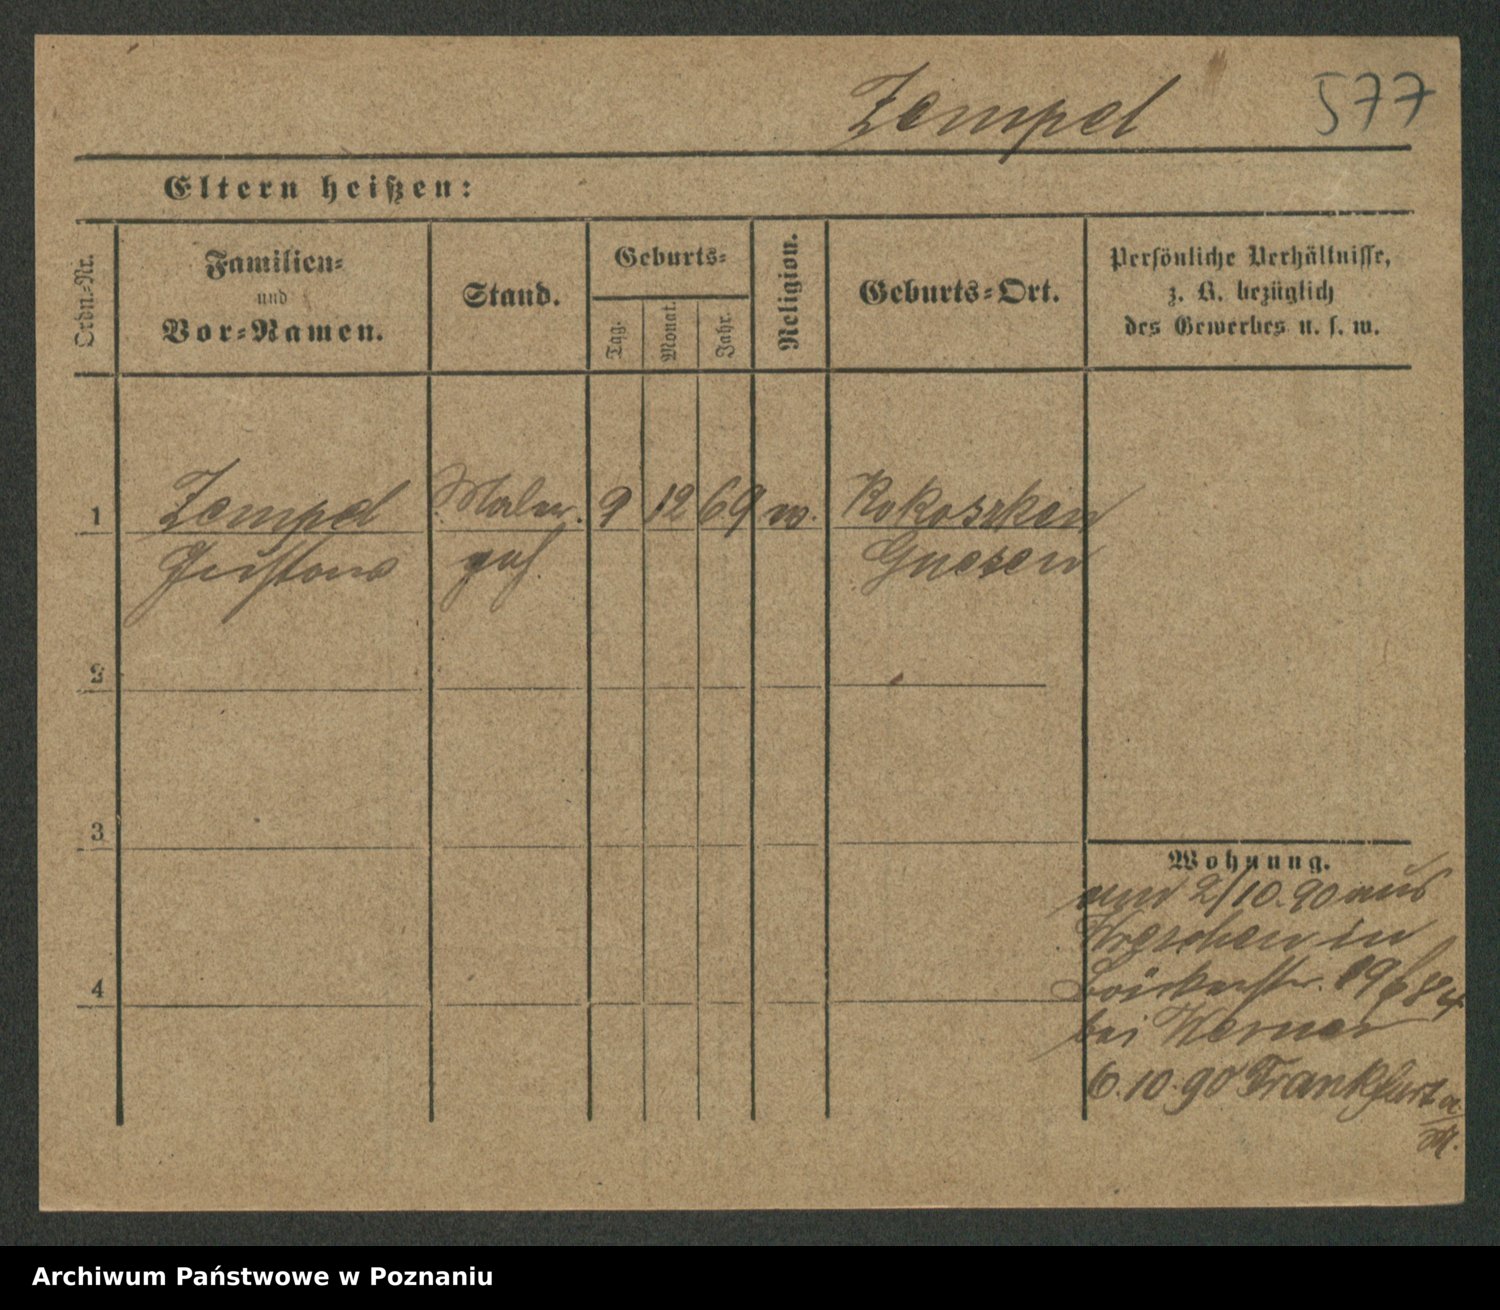 Zempel 577
Eltern heißen:
Ordn.-Nr.
Familien-
und
Vor-Namen.
Stand.
Geburts-
Tag.
Monat.
Jahr.
Religion.
Geburts-Ort.
Persönliche Verhältnisse,
z. B. bezüglich
des Gewerbes u. s. w.
1 Zempel Maler 9 12 69 Rokoszken
Gustav Gnesen
2
3
4
Wohnung.
2/10.90 aus
Wreschen in
Bäckerstr. 19
bei Werner
6.10.90 Frankfurt a/
M.
Archiwum Państwowe w Poznaniu